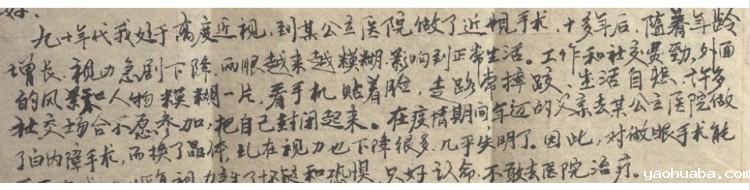 好.
九十年代我处于高度近视,到某公立医院做了近视手术,十多年后,随着年龄
增长,视力急剧下降,两眼越来越模糊.影响到正常生活。工作和社交费劲,外面
的风景和人物模糊一片,看手机贴着脸,走路常摔跤,生活自卑,许多
社交场合不愿参加,把自己封闭起来。在疫情期间,年迈的父亲去某公立医院做
了白内障手术,而换了晶体,现在视力也下降很多,几乎失明了。因此,对做眼手术能
恢复视力产生了怀疑和恐惧,只好认命,不敢去医院治疗。
yaohuaba.com